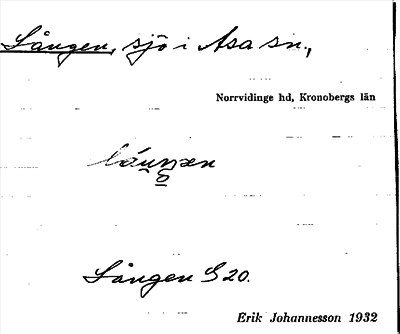 Sången, sjö i Asa sn.,
Norrvidinge hd, Kronobergs län
Sången G 20.
Erik Johannesson 1932